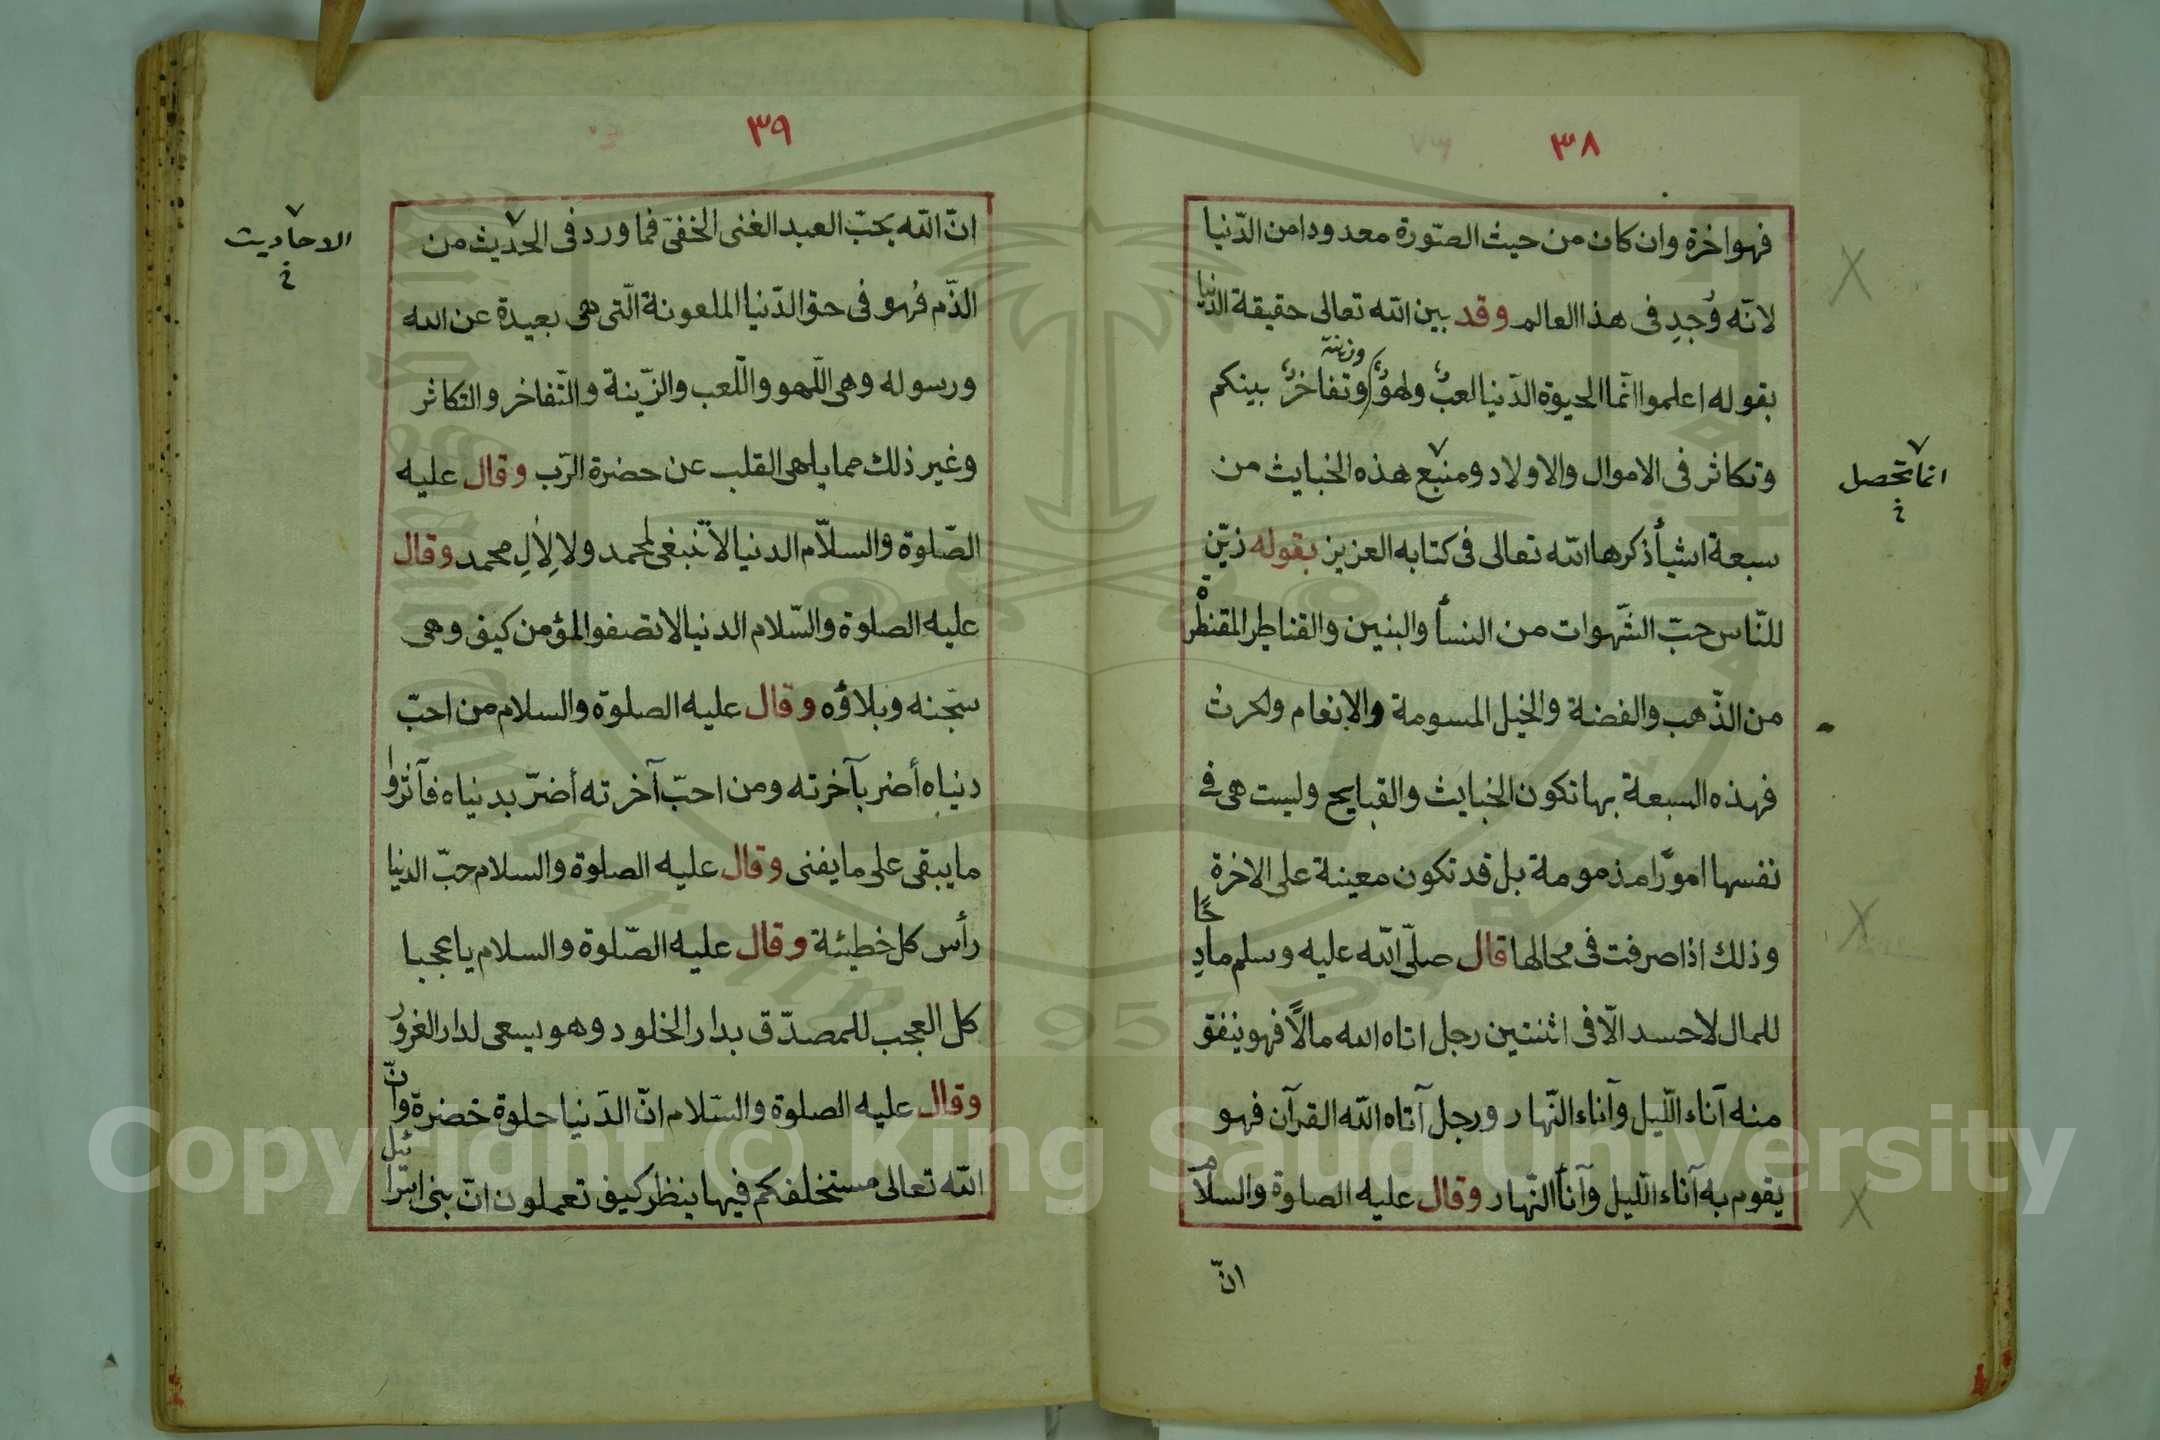 ٣٨
فهو اخرة وان كان من حيث الصّورة معدودا من الدّنيا
لانّه وُجِد فى هذا العالم وقد بين الله تعالى حقيقة الدّنيا
بقوله اعلموا انّما الحيوة الدّنيا لعبٌ ولهوٌ وزينة وتفاخرٌ بينكم
وتكاثر فى الاموال والاولاد ومنبع هذه الخبايث من
انما تحصل
خ
سبعة اشيأ ذكرها الله تعالى فى كتابه العزيز بقوله زيّن
للنّاس حبّ الشّهوات من النسأ والبنين والقناطير المقنطرة
من الذّهب والفضة والخيل المسومة والانعام والحرث
فهذه السبعة بها تكون الخبايث والقبايح وليست هى فى
نفسها امورًا مذمومة بل قد تكون معينة على الاخرة
وذلك اذا صرفت فى محالها قال صلّى الله عليه وسلم مادحًا
للمال لا حسد الّا فى اثنتين رجل اتاه الله مالًا فهو ينفق
منه آناء اللّيل وآناء النّهار ورجل آتاه الله القرآن فهو
يقوم به آناء اللّيل وآنأ النّهار وقال عليه الصلوة والسلام
انّ
٣٩
انّ الله يحبّ العبد الغنى الخفىّ فما ورد فى الحديث من
الاحاديث
خ
الذّم فهو فى حق الدّنيا الملعونة الّتى هى بعيدة عن الله
ورسوله وهى اللّهو واللّعب والزّينة والتّفاخر والتكاثر
وغير ذلك مما يلهى القلب عن حضرة الرّب وقال عليه
الصّلوة والسلاّم الدنيا لا تنبغى لمحمد ولا لِآلِ محمد وقال
عليه الصلوة والسّلام الدنيا لا تصفو المؤمن كيف وهى
سجنه وبلاؤه وقال عليه الصلوة والسلام من احبّ
دنياه أضر بآخرته ومن احبّ آخرته أضرّ بدنياه فآثروا
ما يبقى على ما يفنى وقال عليه الصلوة والسلام حبّ الدنيا
رأس كل خطيئة وقال عليه الصّلوة والسلام يا عجبا
كل العجب للمصدّق بدار الخلود وهو يسعى لدار الغرور
وقال عليه الصلوة والسّلام انّ الدّنيا حلوة خضرة وانّ
الله تعالى مستخلفكم فيها ينظر كيف تعملون انّ بنى اسرائيل
Copyright © King Saud University
1957